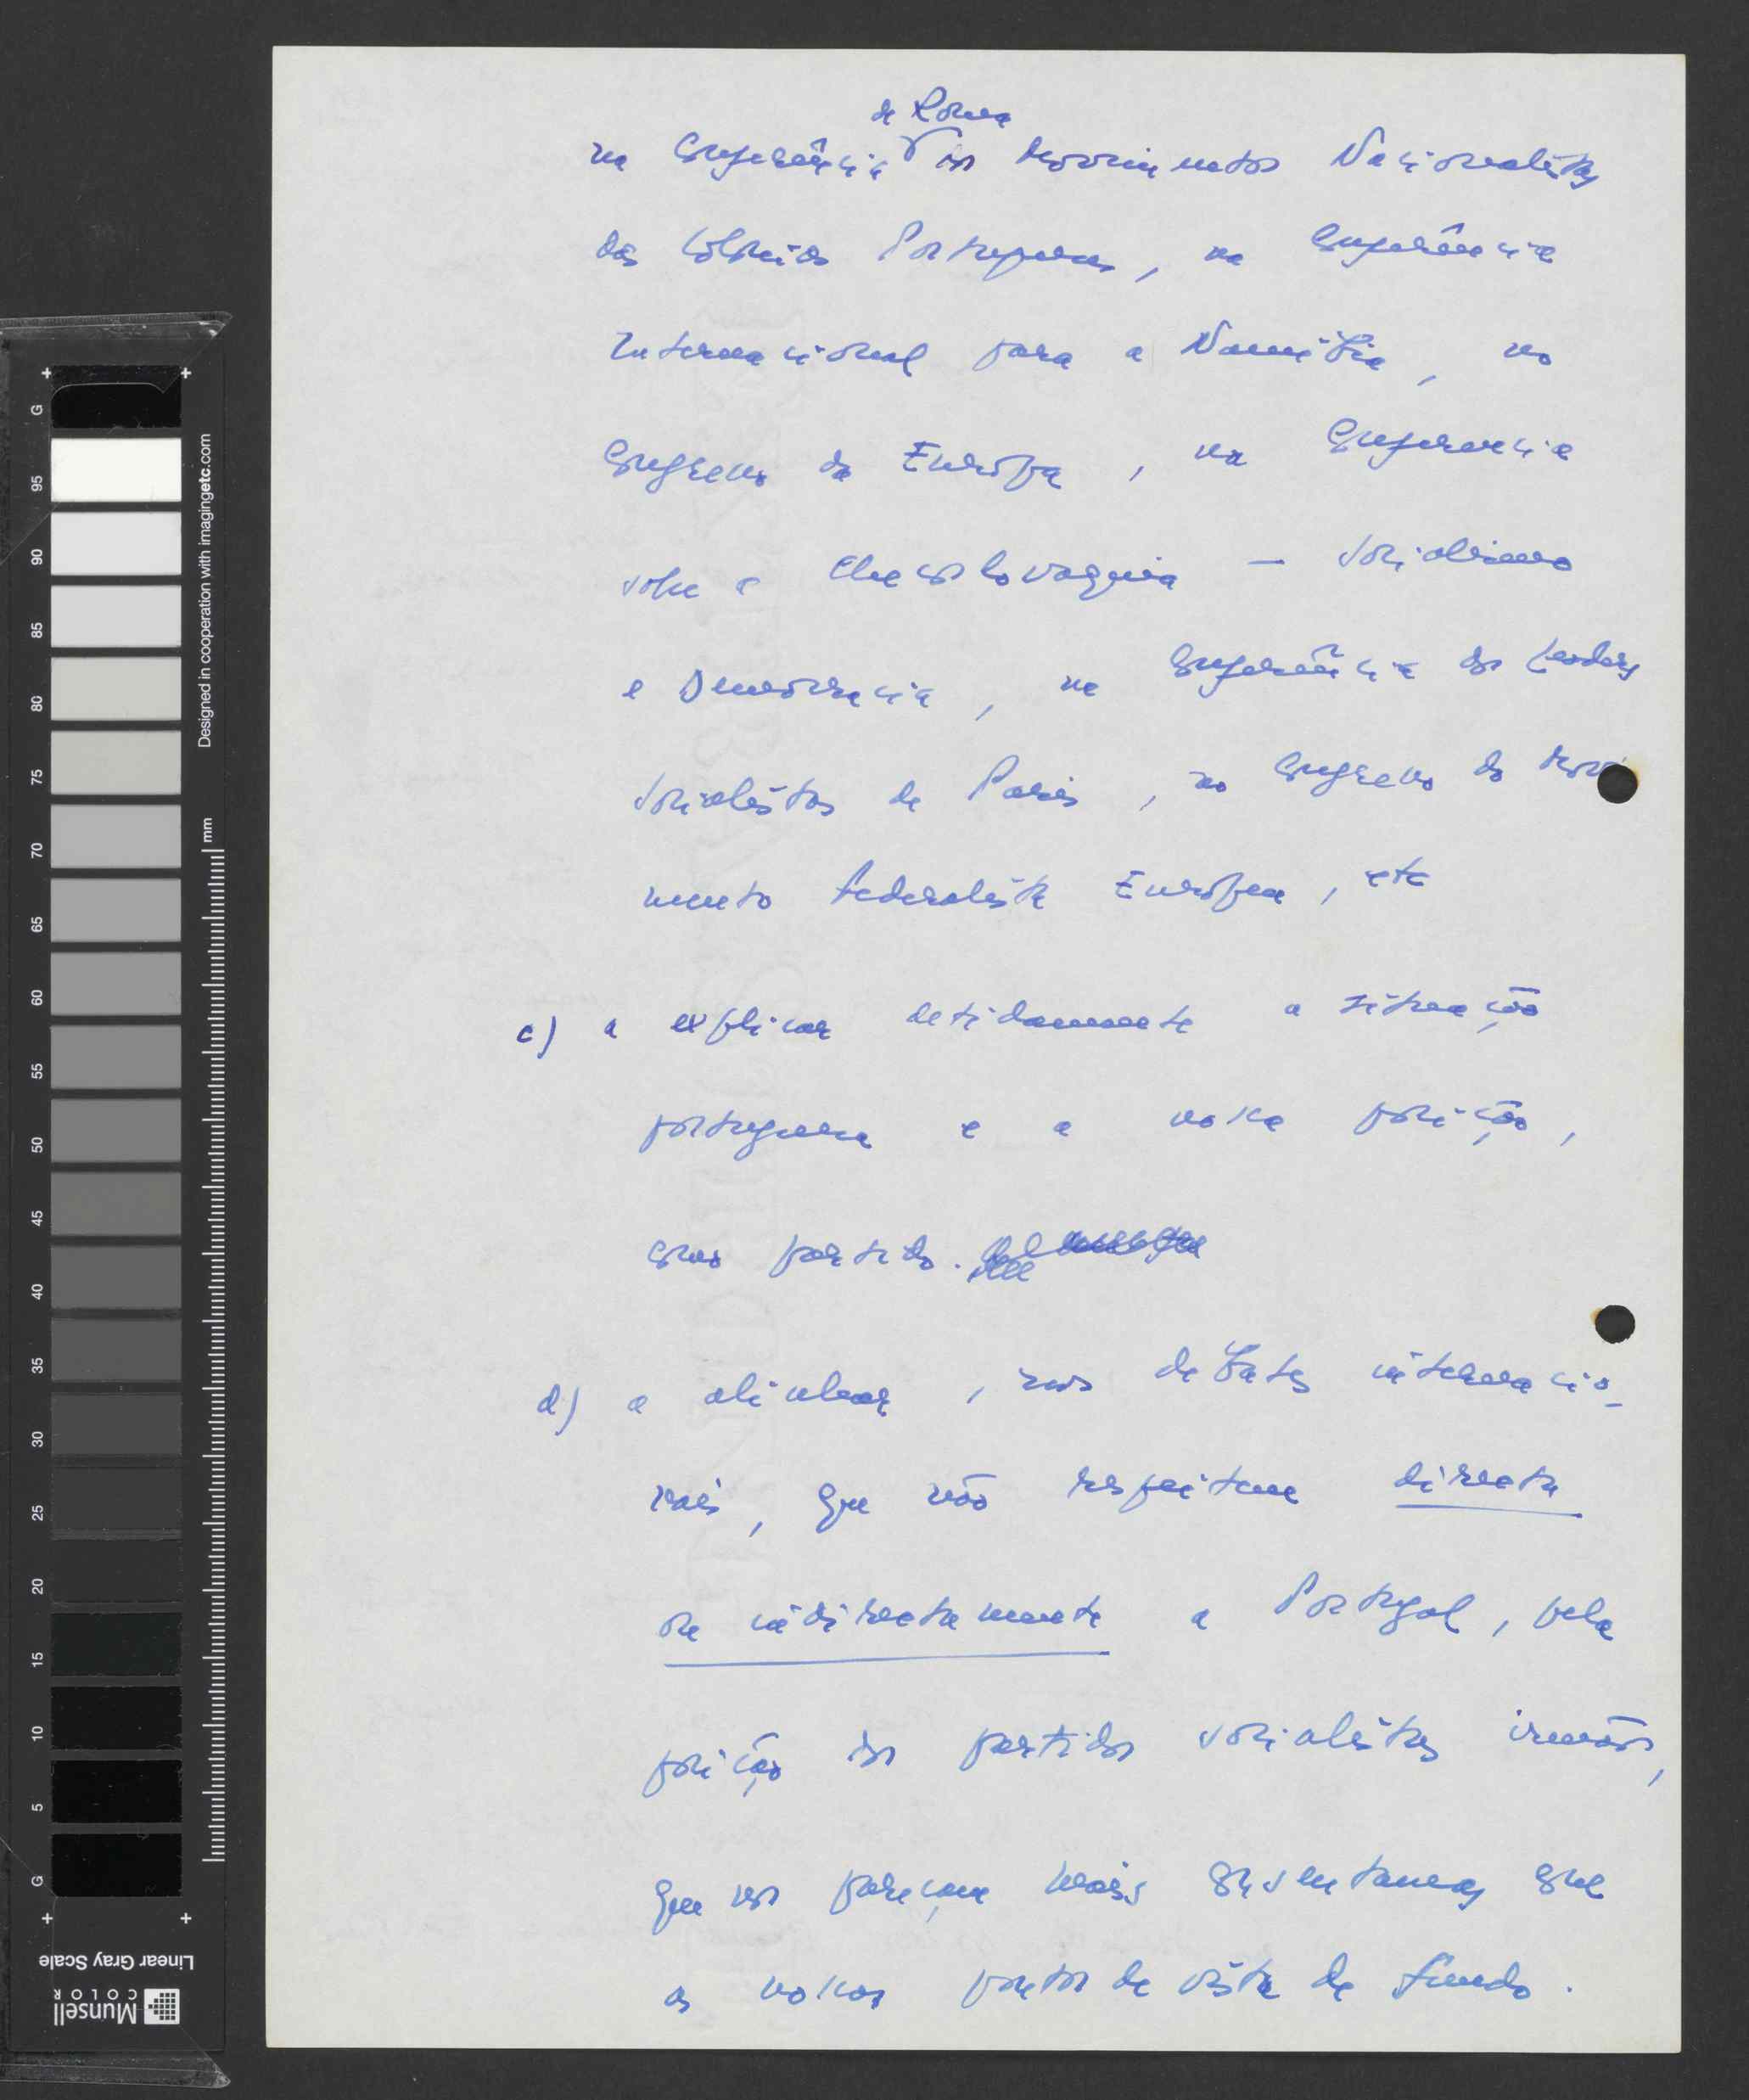 de Roma
na Conferência dos Movimentos Nacionalistas
das Colónias Portuguesas, na Conferência
Internacional para a Namíbia, no
Congresso da Europa, na Conferência
sobre a Checoslováquia — Socialismo
e Democracia, na Conferência dos Leaders
Socialistas de Paris, no Congresso do Movi
mento Federalista Europeu, etc
c) a explicar detidamente a situação
portuguesa e a nossa posição,
como partido.
d) a alinhar, nos debates internacio_
nais, que não respeitem directa
ou indirectamente a Portugal, pela
posição dos partidos socialistas irmãos,
que nos pareçam mais consentâneas com
os nossos pontos de vista de fundo.
G
95
90
85
80
75
70
65
60
55
50
45
40
35
30
25
20
15
10
5
G
mm
Designed in cooperation with imagingetc.com
Linear Gray Scale
Munsell
COLOR